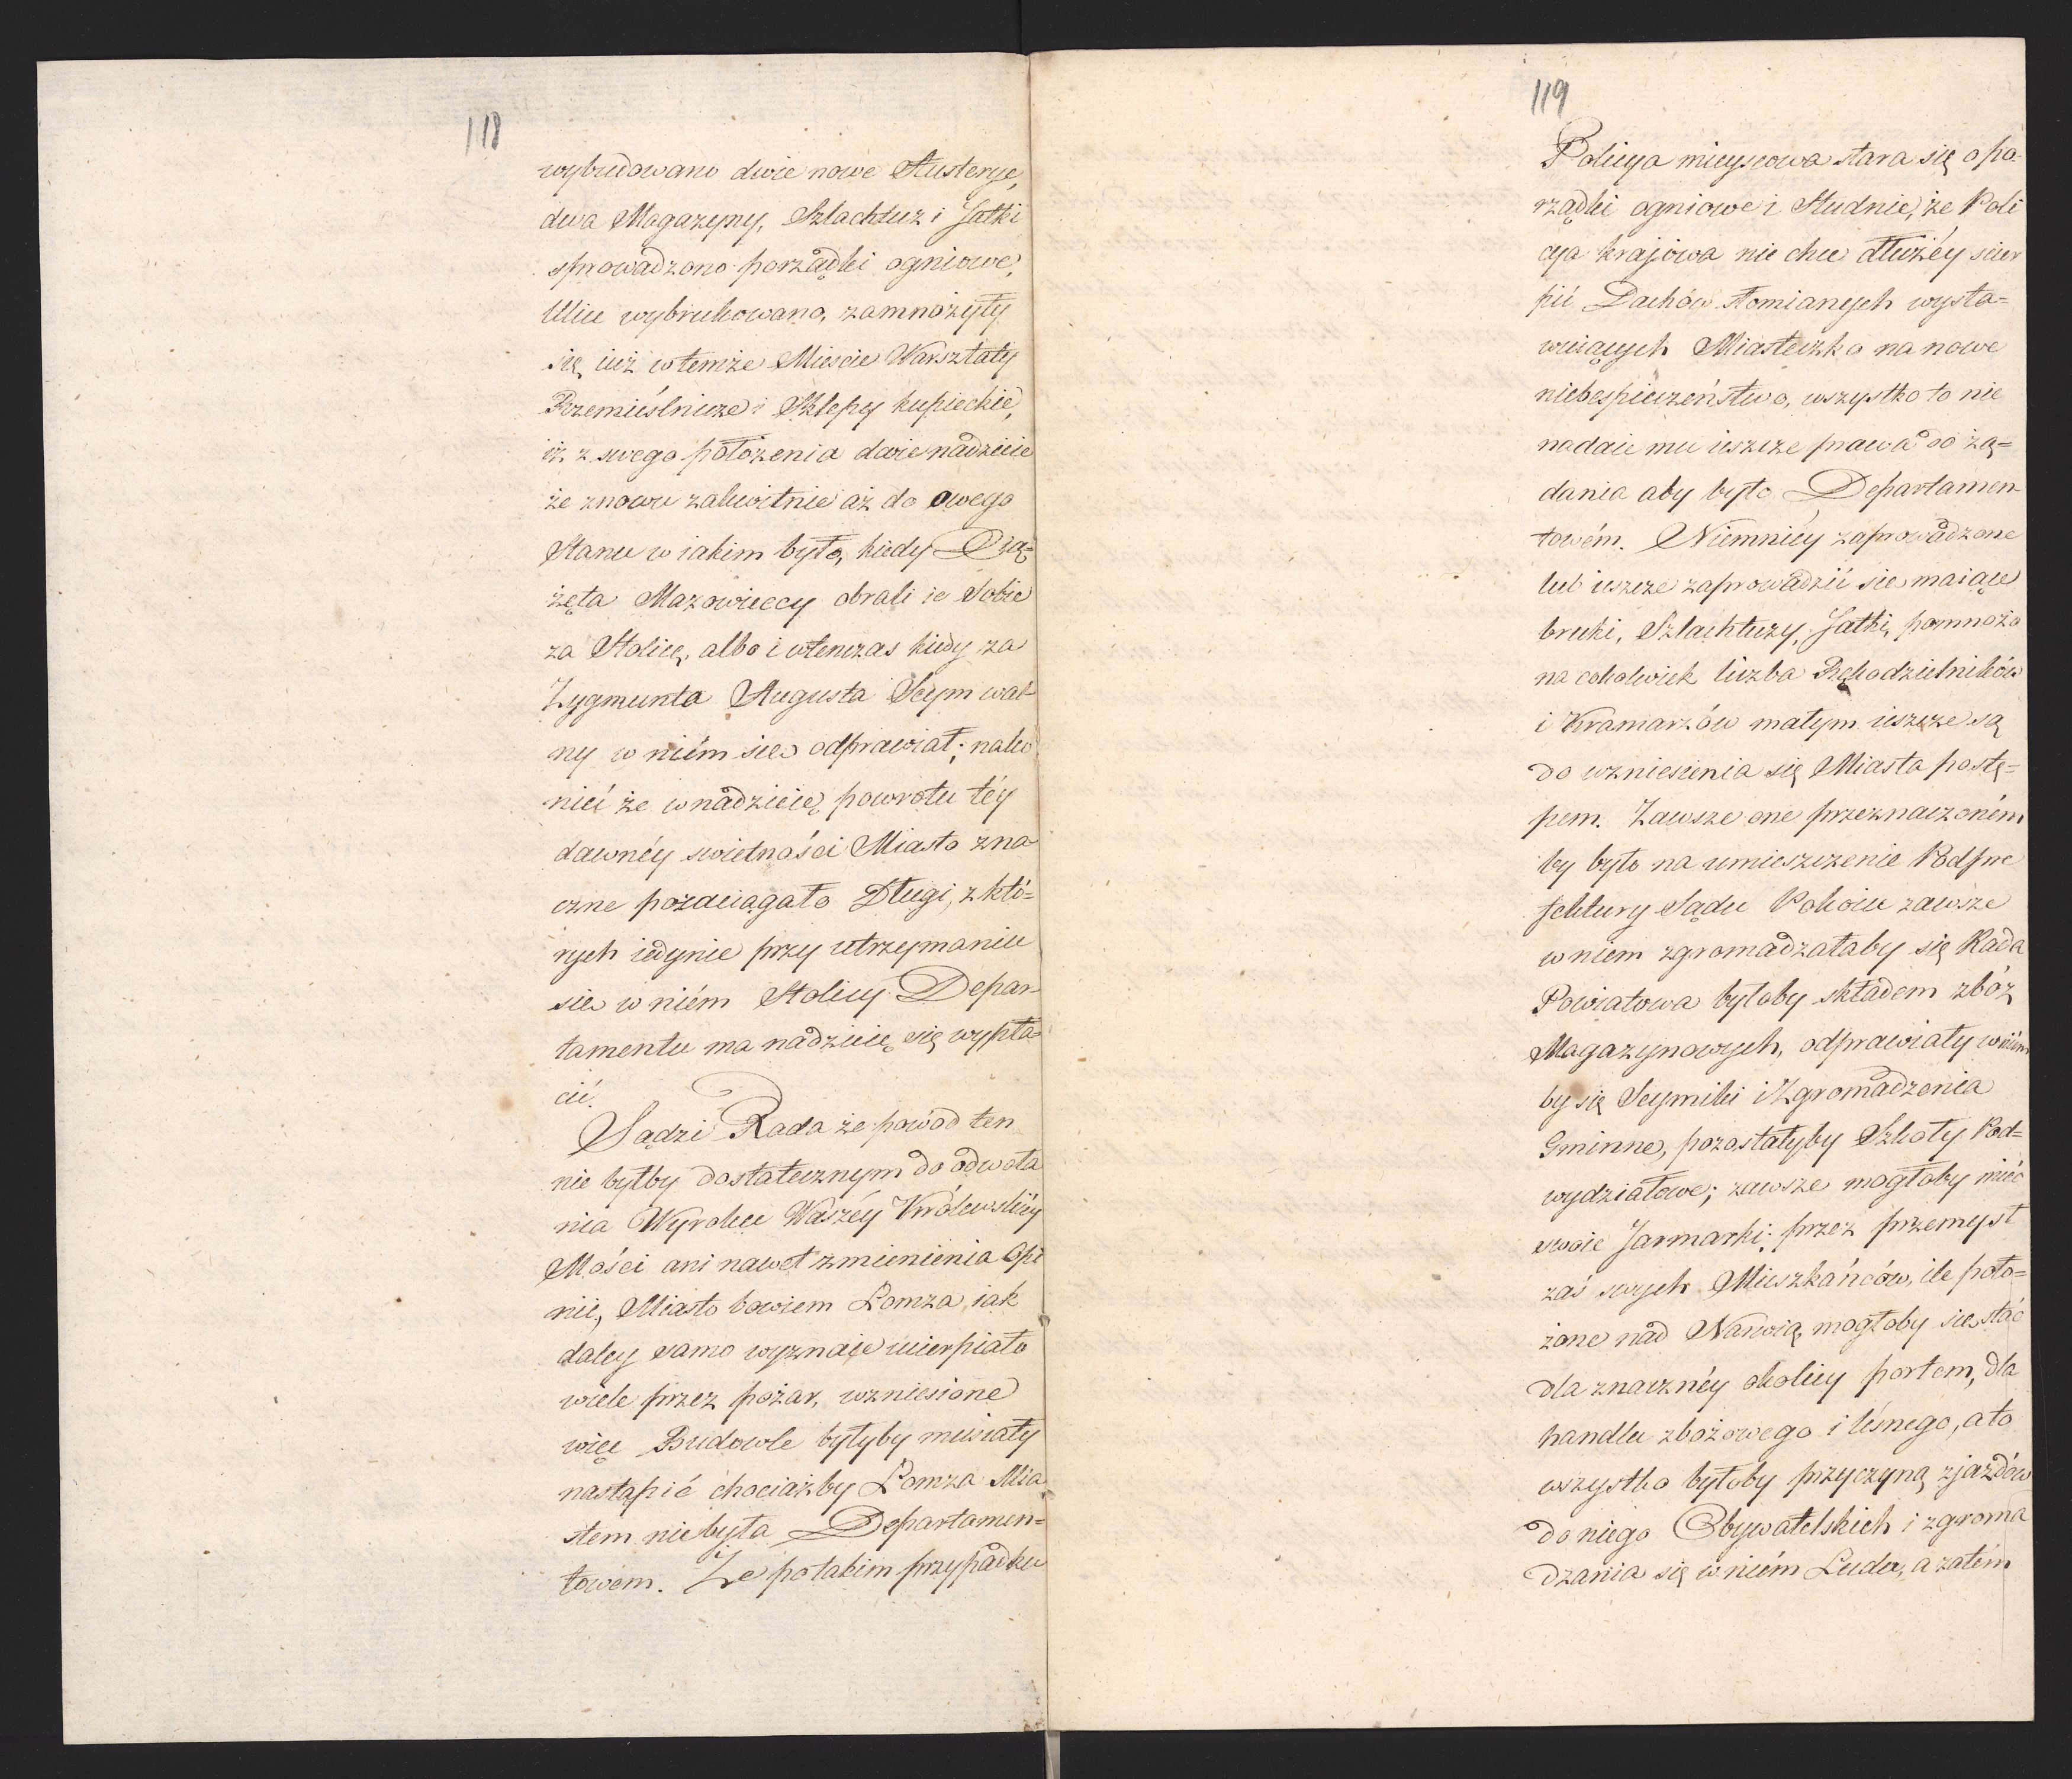 118
wybudowano dwie nowe Austerye,
dwa Magazyny, Szlachtuz i Jatki
sprowadzono porządki ogniowe,
Ulice wybrukowano, zamnożyły
się iuż w temże Mieście Warsztaty
Rzemieślnicze i Sklepy kupieckie,
iż z swego położenia daie nadzieie
że znowu zakwitnie aż do owego
Stanu w iakim było, kiedy Xią=
żęta Mazowieccy obrali ie Sobie
za Stolicę, albo i wtenczas kiedy za
Zygmunta Augusta Seym wal
ny w niém sie odprawiał; nako
nieć że w nadzieię powrotu téy
dawnéy swietności Miasto zna
czne pozaciągało Długi, z któ=
rych iedynie przy utrzymaniu
sie w niém Stolicy Depar=
tamentu ma nadzieię się wypła=
cić.
Sądzi Rada że powód ten
nie byłby dostatecznym do odwoła
nia Wyroku Waszéy Królewskiéy
Mości ani nawet zmienienia Opi
nii, Miasto bowiem Łomza, iak
daley samo wyznaie ucierpiało
wiele przez pożar, wzniesione
więc Budowle byłyby musiały
nastąpić chociażby Łomza Mia
stem niebyła Departamen=
towem. Że po takim przypadku
119
Policya mieyscowa stara się o po=
rządki ogniowe i Studnie, że Poli
cya krajowa nie chce dłużéy scier
pić Dachów słomianych wysta=
wiaiących Miasteczko na nowe
niebespieczeństwo, wszystko to nie
nadaie mu ieszcze prawa do żą=
dania aby było Departamen=
towém. Niemniéy zaprowadzone
lub ieszcze zaprowadzić sie maiące
bruki, Szlachtuzy, Jatki, pomnożo
na cokolwiek liczba Rękodzielników
i Kramarzów małym ieszcze są
do wzniesienia się Miasta postę=
pem. Zawsze one przeznaczoném
by było na umieszczenie Podpre
fektury Sądu Pokoiu zawsze
w niem zgromadzałaby się Rada
Powiatowa byłoby składem zbóż
Magazynowych, odprawiały w niém
by się Seymiki i Zgromadzenia
Gminne, pozostałyby Szkoły Pod=
wydziałowe; zawsze mogłoby mieć
swoie Jarmarki; przez przemysł
zaś swych Mieszkańców, ile poło=
żone nad Narwią, mogłoby sie stać
dla znacznéy okolicy portem, dla
handlu zbożowego i leśnego, a to
wszystko byłoby przyczyną zjazdów
do niego Obywatelskich i zgroma
dzania się w niém Ludu, a zatém